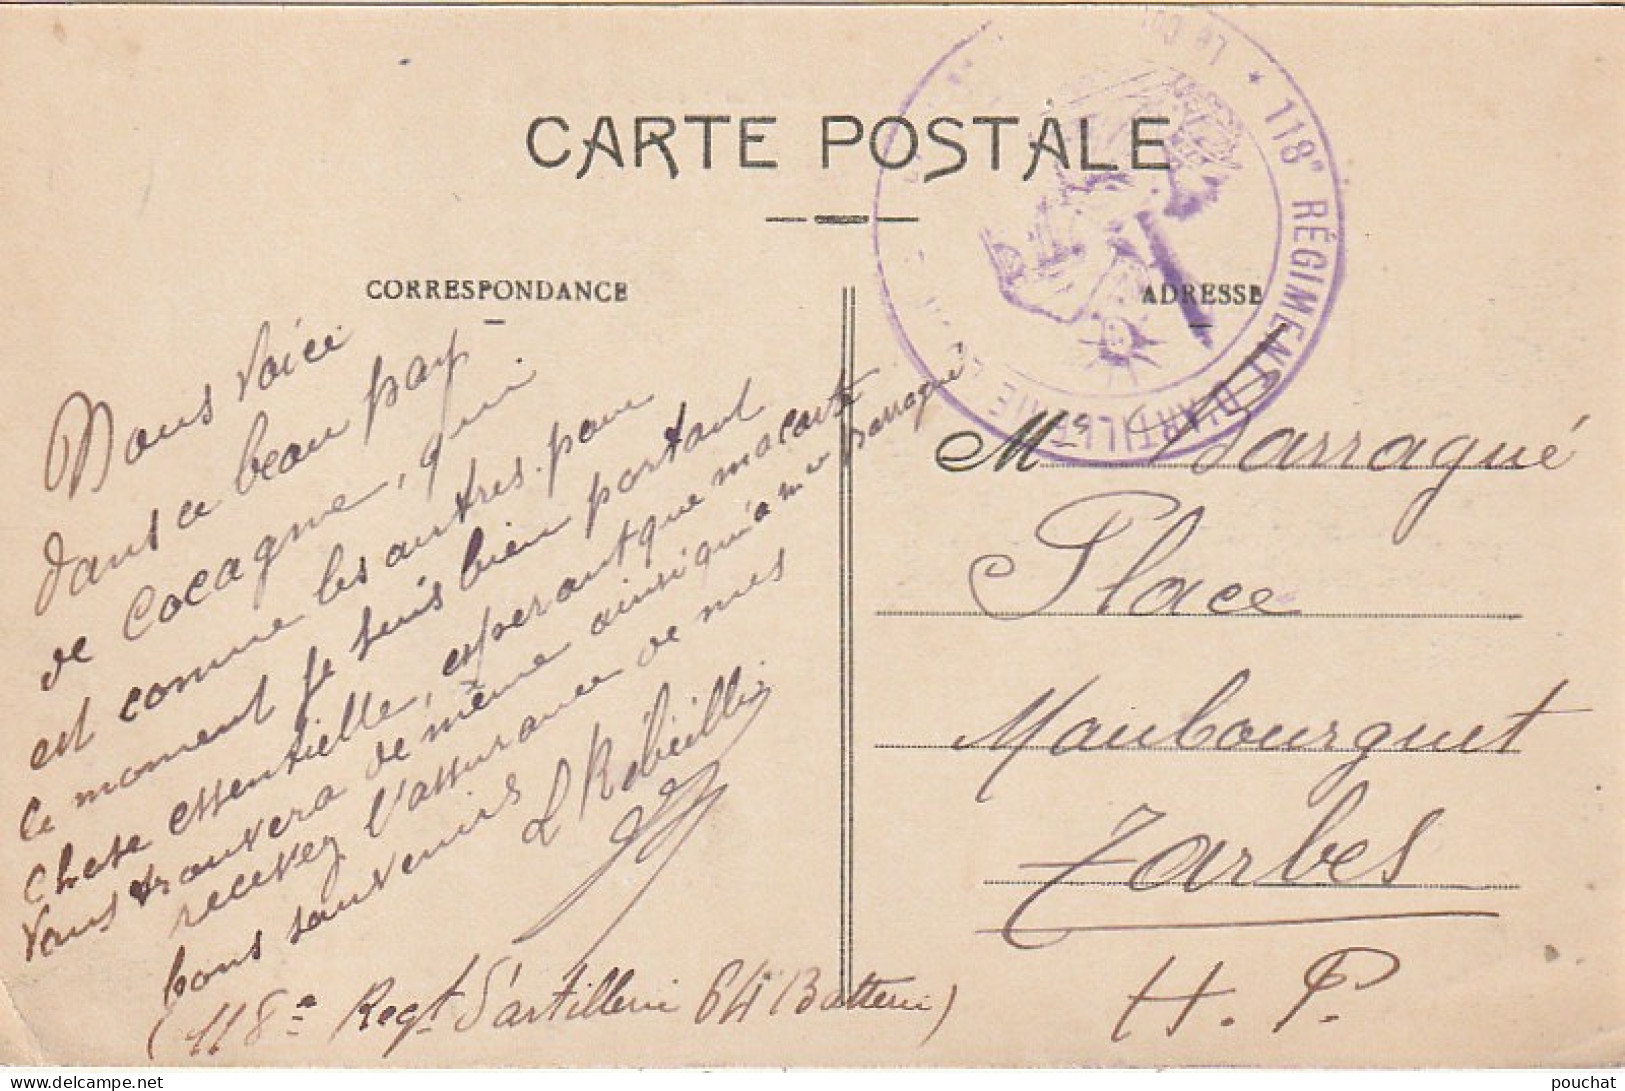 CARTE POSTALE
CORRESPONDANCE
ADRESSE
* 118e RÉGIMENT D'ARTILLERIE
Le
Nous voici
dans ce beau pays
de Cocagne, qui
est comme les autres. pour
le moment je suis bien portant
chose essentielle, espérant que ma carte
vous trouvera de même ainsi qu'à Mr Barragué
recevez l'assurance de mes
bons souvenirs
(118e Regt d'artillerie 64 Batterie)
M Barragué
Place
Maubourguet
Tarbes
H. P.
pouchat